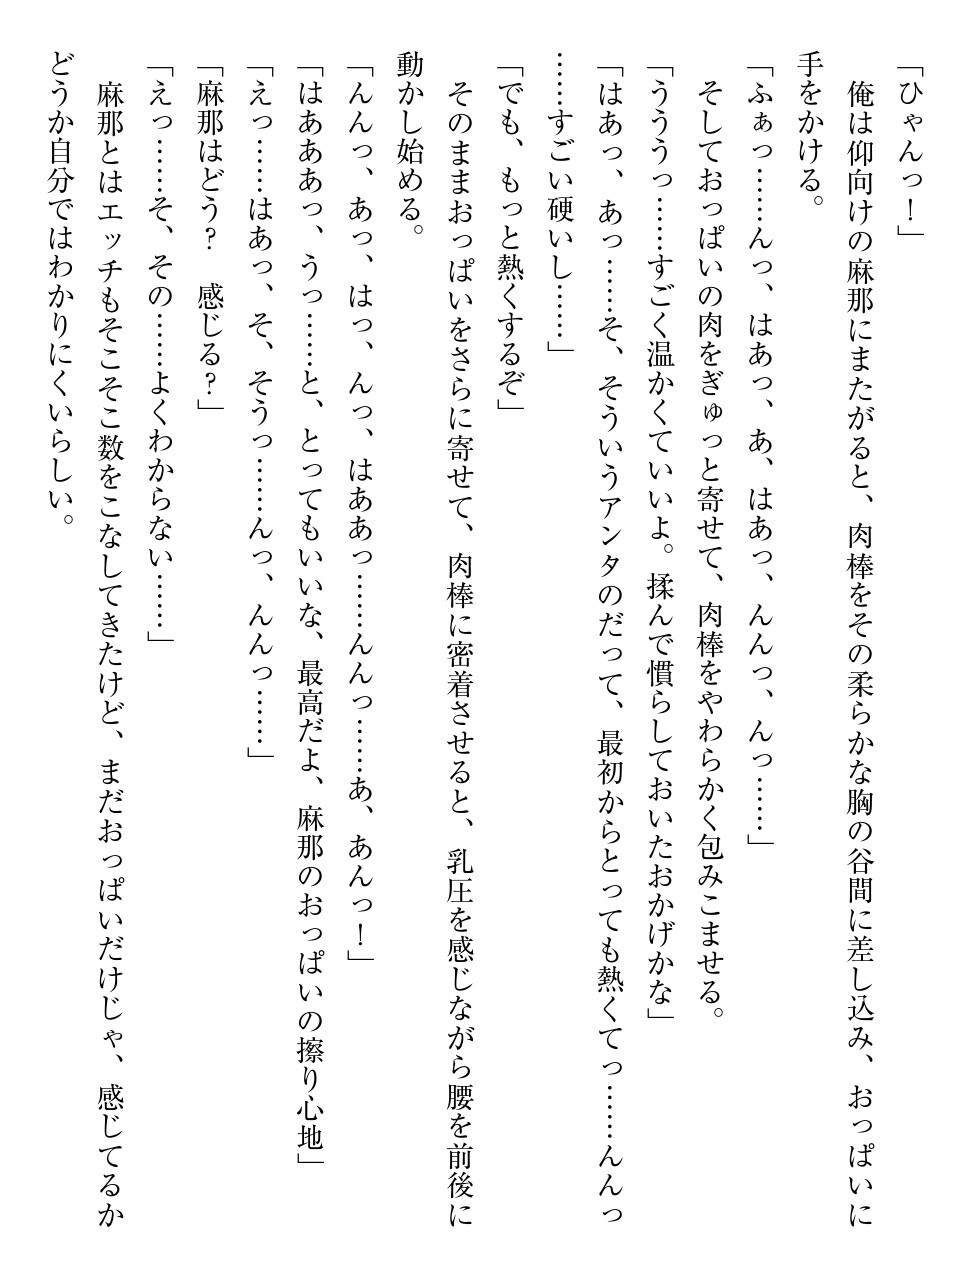 「ひゃんっ！」
　俺は仰向けの麻那にまたがると、肉棒をその柔らかな胸の谷間に差し込み、おっぱいに
手をかける。
「ふぁっ……んっ、はあっ、あ、はあっ、んんっ、んっ……」
　そしておっぱいの肉をぎゅっと寄せて、肉棒をやわらかく包みこませる。
「うううっ……すごく温かくていいよ。揉んで慣らしておいたおかげかな」
「はあっ、あっ……そ、そういうアンタのだって、最初からとっても熱くてっ……んんっ
……すごい硬いし……」
「でも、もっと熱くするぞ」
　そのままおっぱいをさらに寄せて、肉棒に密着させると、乳圧を感じながら腰を前後に
動かし始める。
「んんっ、あっ、はっ、んっ、はああっ……んんっ……あ、あんっ！」
「はあああっ、うっ……と、とってもいいな、最高だよ、麻那のおっぱいの擦り心地」
「えっ……はあっ、そ、そうっ……んっ、んんっ……」
「麻那はどう？　感じる？」
「えっ……そ、その……よくわからない……」
　麻那とはエッチもそこそこ数をこなしてきたけど、まだおっぱいだけじゃ、感じてるか
どうか自分ではわかりにくいらしい。